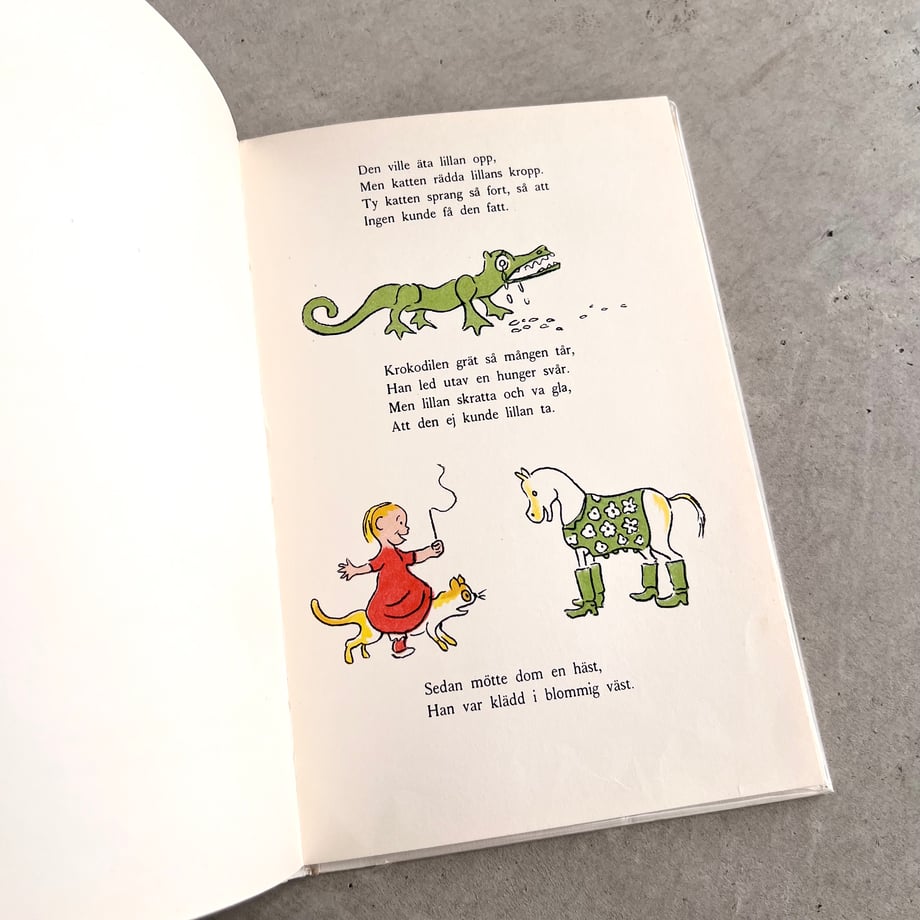 Den ville äta lillan opp,
Men katten rädda lillans kropp.
Ty katten sprang så fort, så att
Ingen kunde få den fatt.
Krokodilen grät så mången tår,
Han led utav en hunger svår.
Men lillan skratta och va gla,
Att den ej kunde lillan ta.
Sedan mötte dom en häst,
Han var klädd i blommig väst.